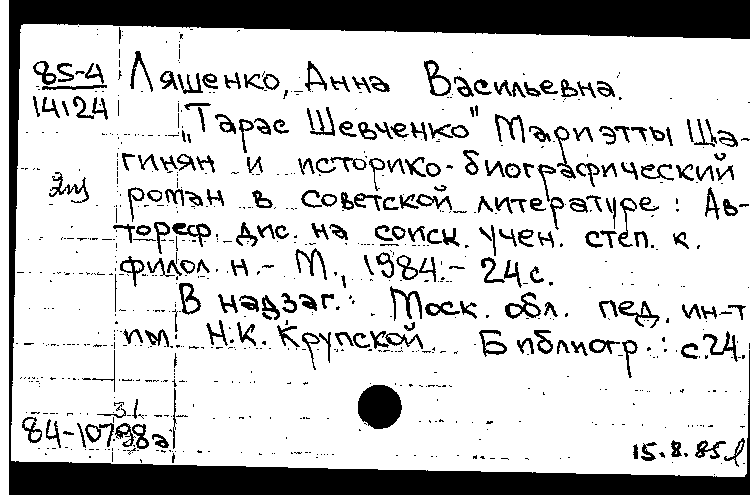 85-4
14124
Ляшенко, Анна Васильевна.
"Тарас Шевченко" Мариэтты Ша-
гинян и историко-биографический
роман в советской литературе : Ав-
тореф. дис. на соиск. учен. степ. к.
филол. н. - М., 1984. - 24 с.
В надзаг.: Моск. обл. пед. ин-т
им. Н.К. Крупской. Библиогр.: с.24.
31
84-10798а
15.8.85